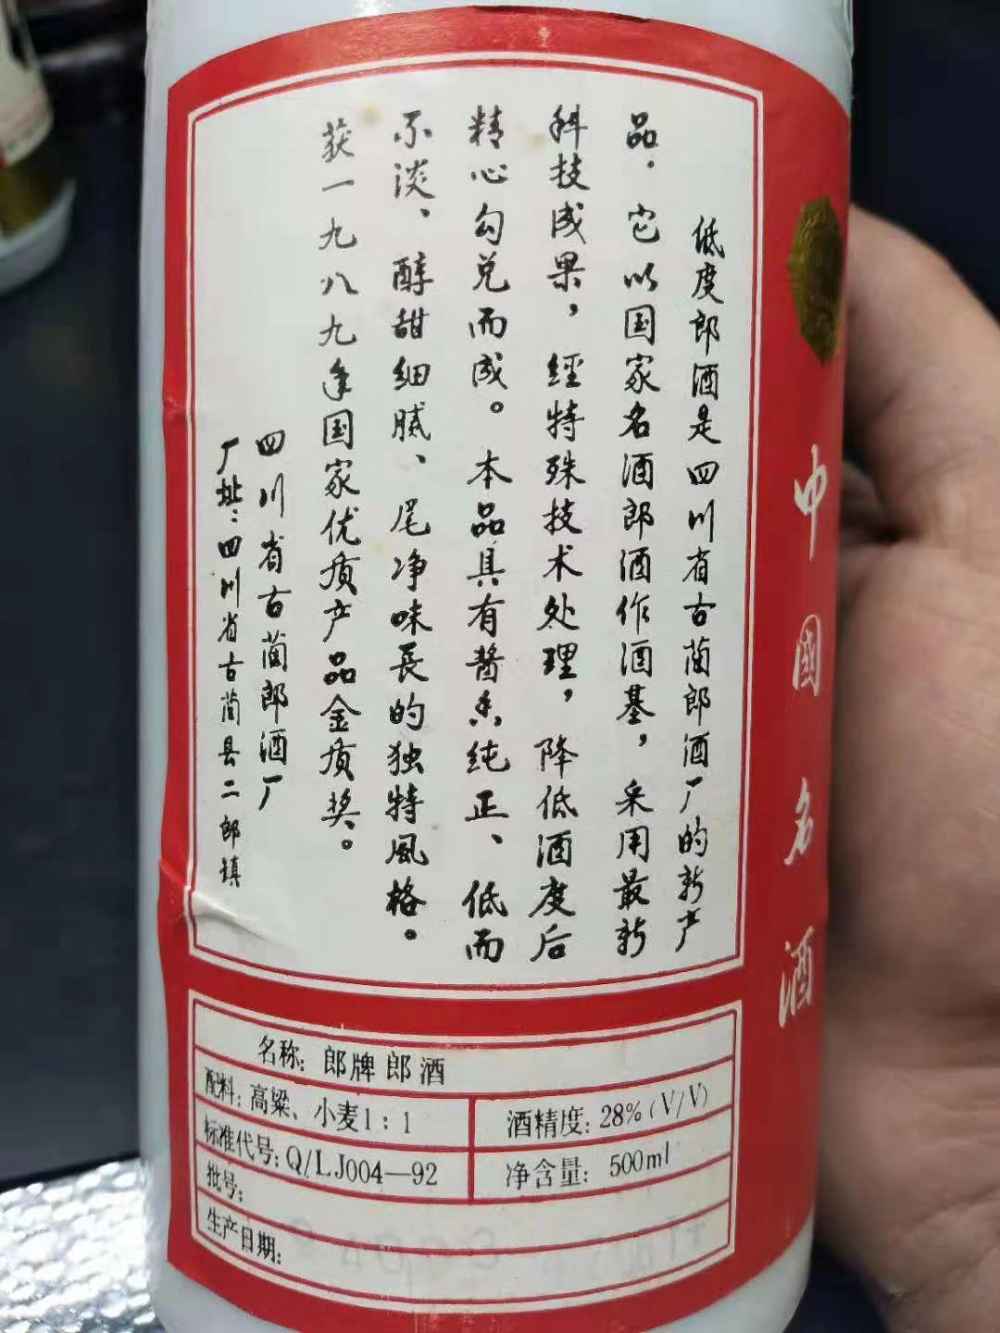 低度郎酒是四川省古蔺郎酒厂的新产
品．它以国家名酒郎酒作酒基，采用最新
科技成果，經特殊技术处理，降低酒度后
精心勾兑而成。本品具有酱香纯正、低而
不淡、醇甜细腻、尾净味長的独特風格。
获一九八九年国家优质产品金质奖。
四川省古蔺郎酒厂
厂址：四川省古蔺县二郎镇
中國名酒
名称：郎牌郎酒
配料：高粱、小麦1：1
酒精度：28%(V/V)
标准代号：Q/LJ004—92
净含量：500ml
批号：
生产日期：